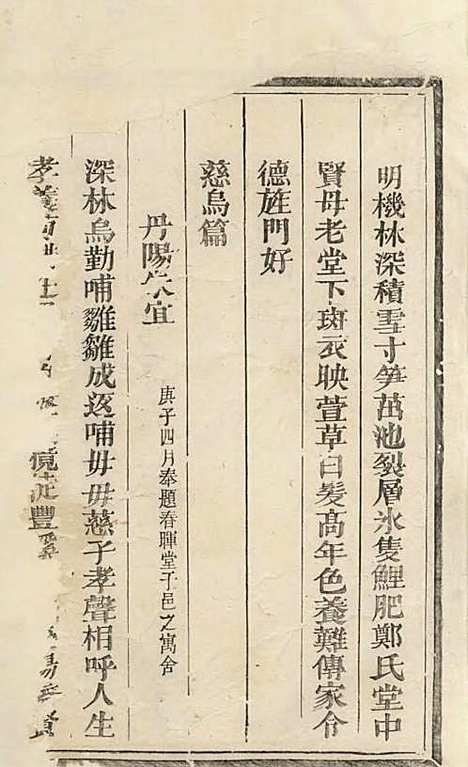 明機林深積雪寸笋茁池裂層氷隻鯉肥鄭氏堂中
賢母老堂下斑衣映萱草白髮高年色養難傳家令
德旌門好
慈烏篇
丹陽 宜 庚子四月奉題春暉堂于邑之寓舍
深林烏勤哺雛雛成返哺毋毋慈子孝聲相呼人生
孝 豐